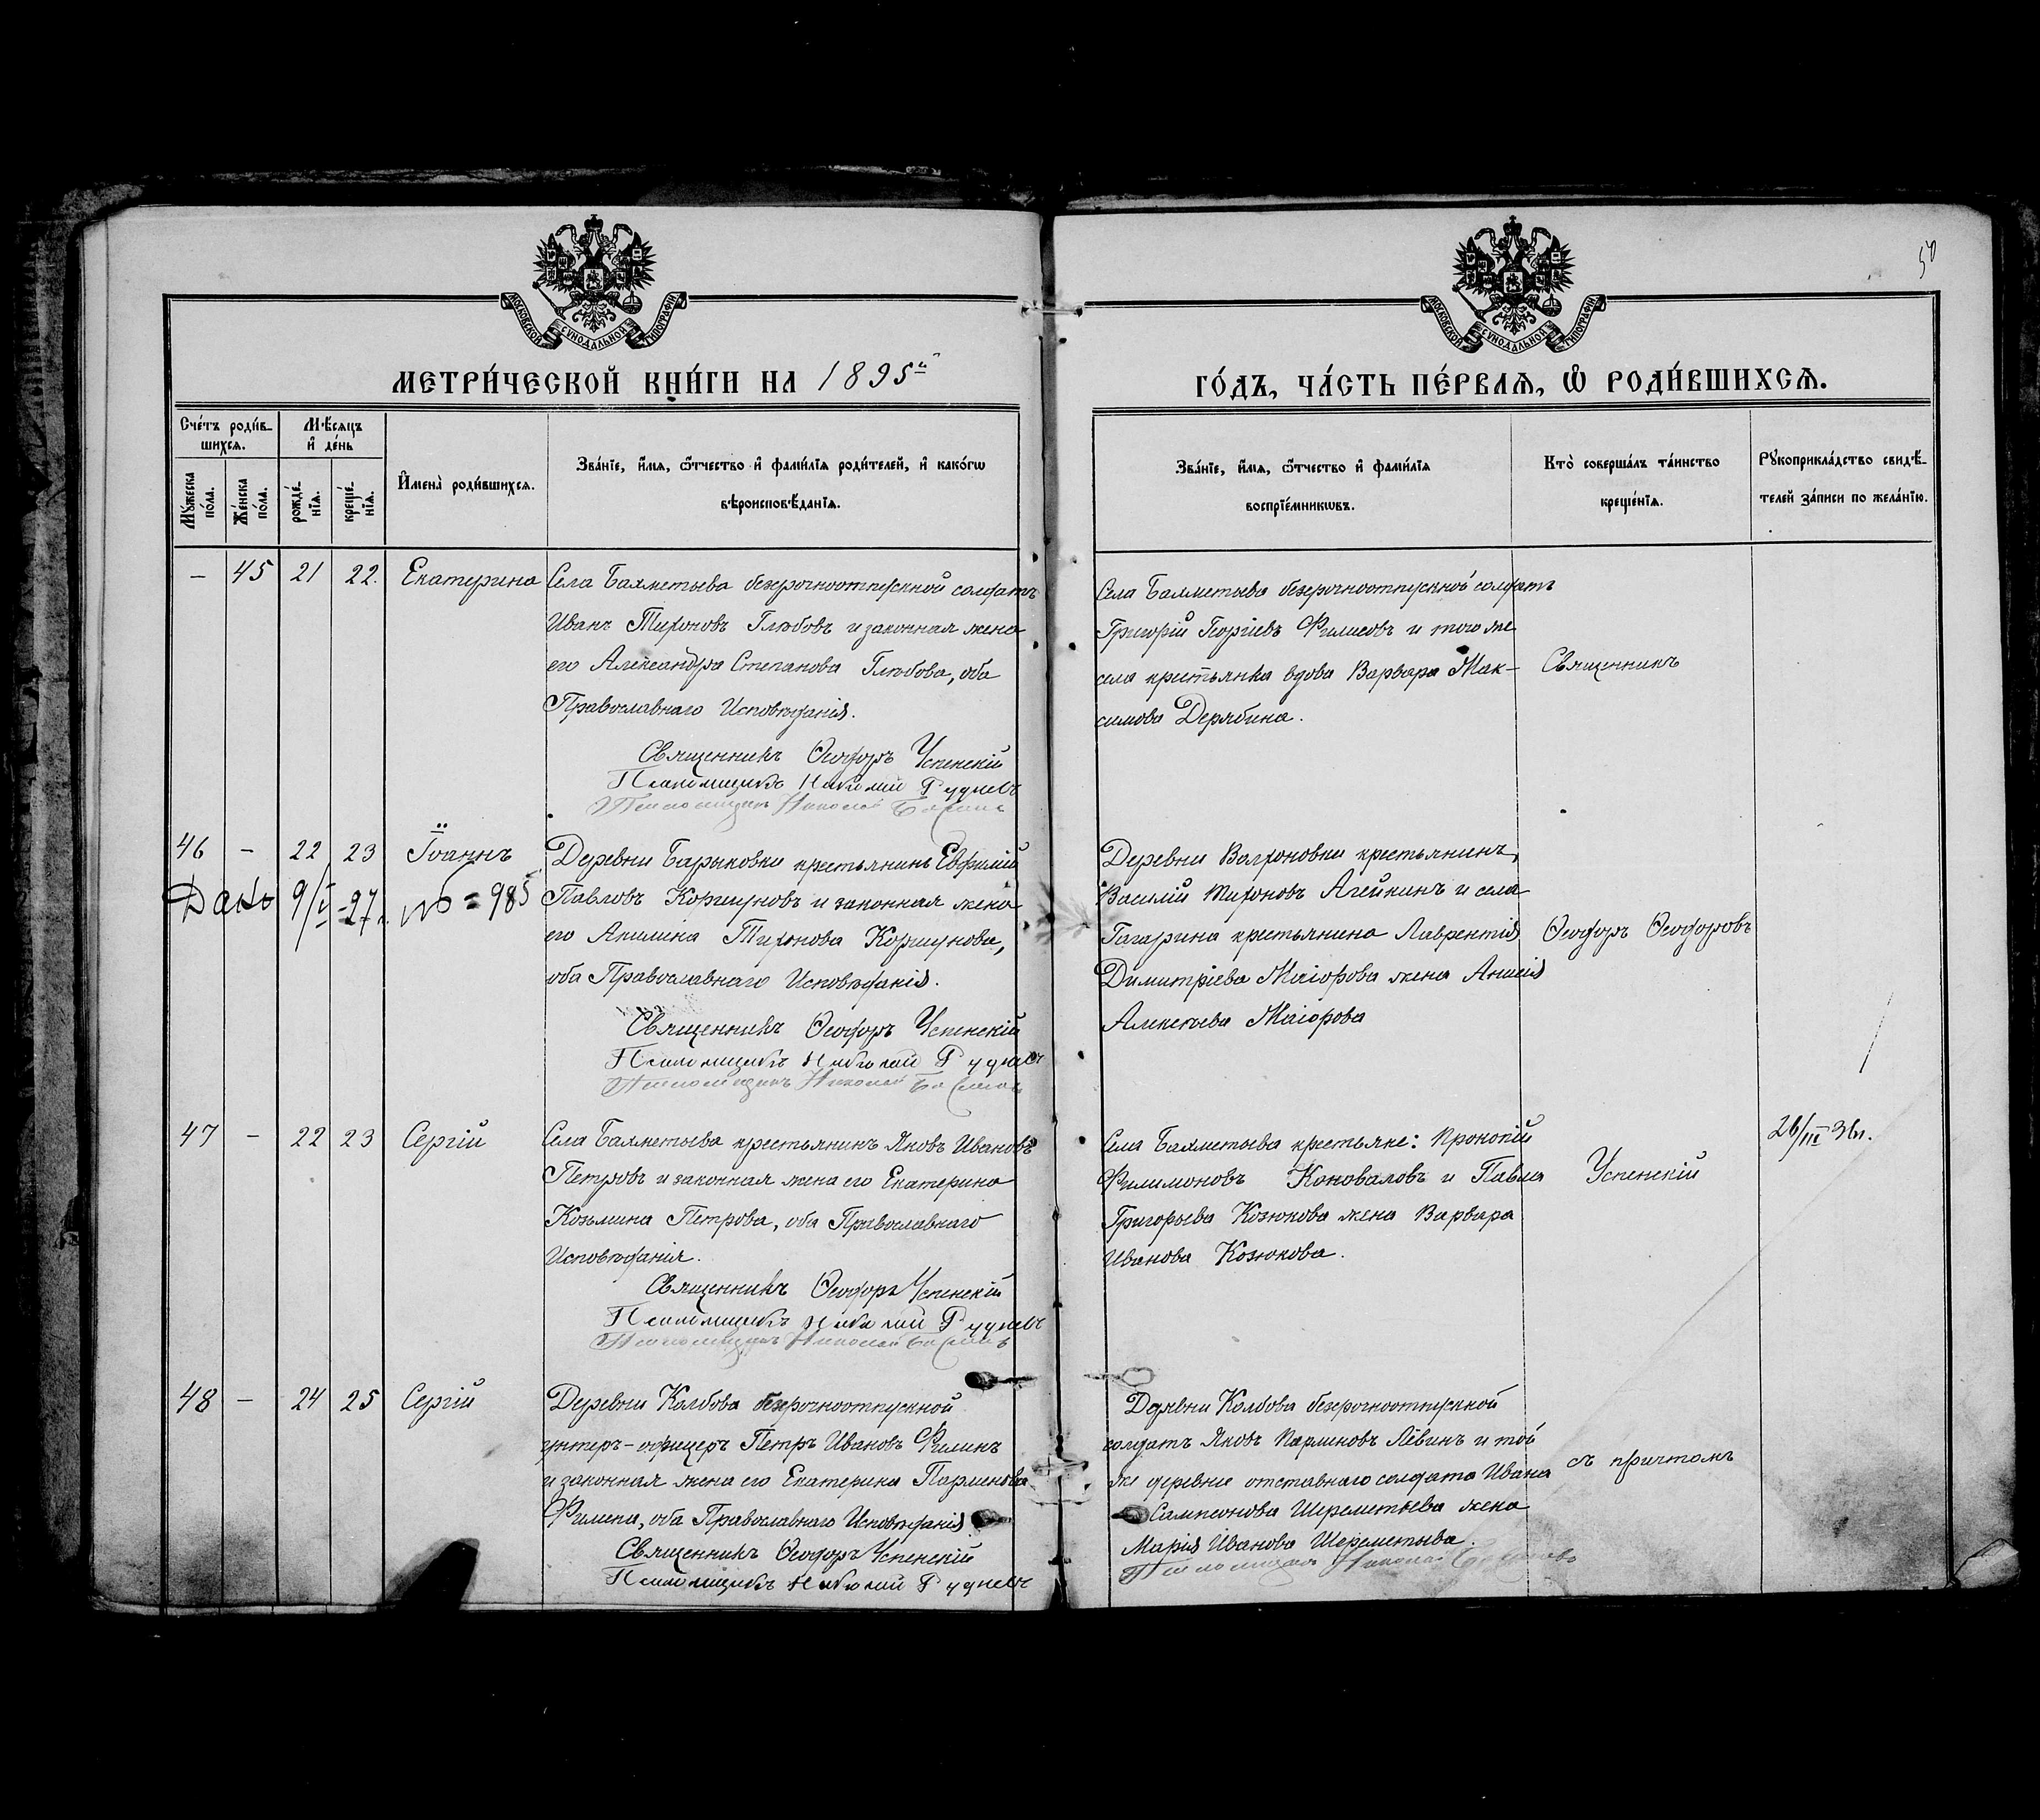 50
МОСКОВСКОЙ СУНОДАЛЬНОЙ ТИПОГРАФІИ
МОСКОВСКОЙ СУНОДАЛЬНОЙ ТИПОГРАФІИ
МЕТРИ́ЧЕСКОЙ КНИ́ГИ НА 1895й
ГО́ДЪ, ЧА́СТЬ ПЕ́РВАѦ, Ѡ҆ РОДИ́ВШИХСѦ.
Сче́тъ роди́в-
шихсѧ.
Мѣ́сѧцъ
и҆ де́нь
Мꙋ́жеска по́ла.
Же́нска по́ла.
рожде́-нїѧ.
креще́-нїѧ.
И҆мена̀ роди́вшихсѧ.
Зва́нїе, и҆́мѧ, ѻ҆́тчество и҆ фамі́лїѧ роди́телей, и҆ како́гѡ
вѣроисповѣ́данїѧ.
Зва́нїе, и҆́мѧ, ѻ҆́тчество и҆ фамі́лїѧ
воспрїе́мникѡвъ.
Кто̀ соверша́лъ та́инство
креще́нїѧ.
Рꙋкоприкла́дство свидѣ́-
телей за́писи по жела́нїю.
— 45 21 22. Екатерина
Села Бахметьева безсрочноотпускной солдатъ
Иванъ Тихоновъ Глѣбовъ и законная жена
его Александра Степанова Глѣбова, оба
Православнаго Исповѣданія.
Священникъ Ѳеодоръ Успенскій
Псаломщикъ Николай Рудневъ
Псаломщикъ Николай
Села Бахметьева безсрочноотпускной солдатъ
Григорій Георгіевъ и того же
села крестьянка вдова Варвара Мак-
симова Дерябина.
Священникъ
46 — 22 23 Іоаннъ
Дано 9/I-27г. № = 985
Деревни Барыковки крестьянинъ Евфимій
Павловъ Коршуновъ и законная жена
его Акилина Тихонова Коршунова,
оба Православнаго Исповѣданія.
Священникъ Ѳеодоръ Успенскій
Псаломщикъ Николай Рудневъ
Псаломщикъ Николай
Деревни крестьянинъ
Василій Тихоновъ Агейкинъ и села
Гагарина крестьянина Лаврентія
Димитріева Маіорова жена
Алексѣева Маіорова
Ѳеодоръ Ѳеодоровъ
47 — 22 23 Сергій
Села Бахметьева крестьянинъ Яковъ Ивановъ
Петровъ и законная жена его Екатерина
Козьмина Петрова, оба Православнаго
Исповѣданія.
Священникъ Ѳеодоръ Успенскій
Псаломщикъ Николай Рудневъ
Псаломщикъ Николай
Села Бахметьева крестьяне: Прокопій
Филимоновъ Коноваловъ и Павла
Григорьева Козюкова жена Варвара
Иванова Козюкова.
Успенскій
26/III 36г.
48 — 24 25 Сергій
Деревни Колбова безсрочноотпускной
унтеръ-офицеръ Петръ Ивановъ Филинъ
и законная жена его Екатерина Парменова
Филина, оба Православнаго Исповѣданія
Священникъ Ѳеодоръ Успенскій
Псаломщикъ Николай Рудневъ
Деревни Колбова безсрочноотпускной
солдатъ Яковъ Парменовъ Лёвинъ и той
же деревни отставнаго солдата Ивана
Сампсонова Шереметьева жена
Марія Иванова Шереметьева.
Псаломщикъ Николай
съ причтомъ